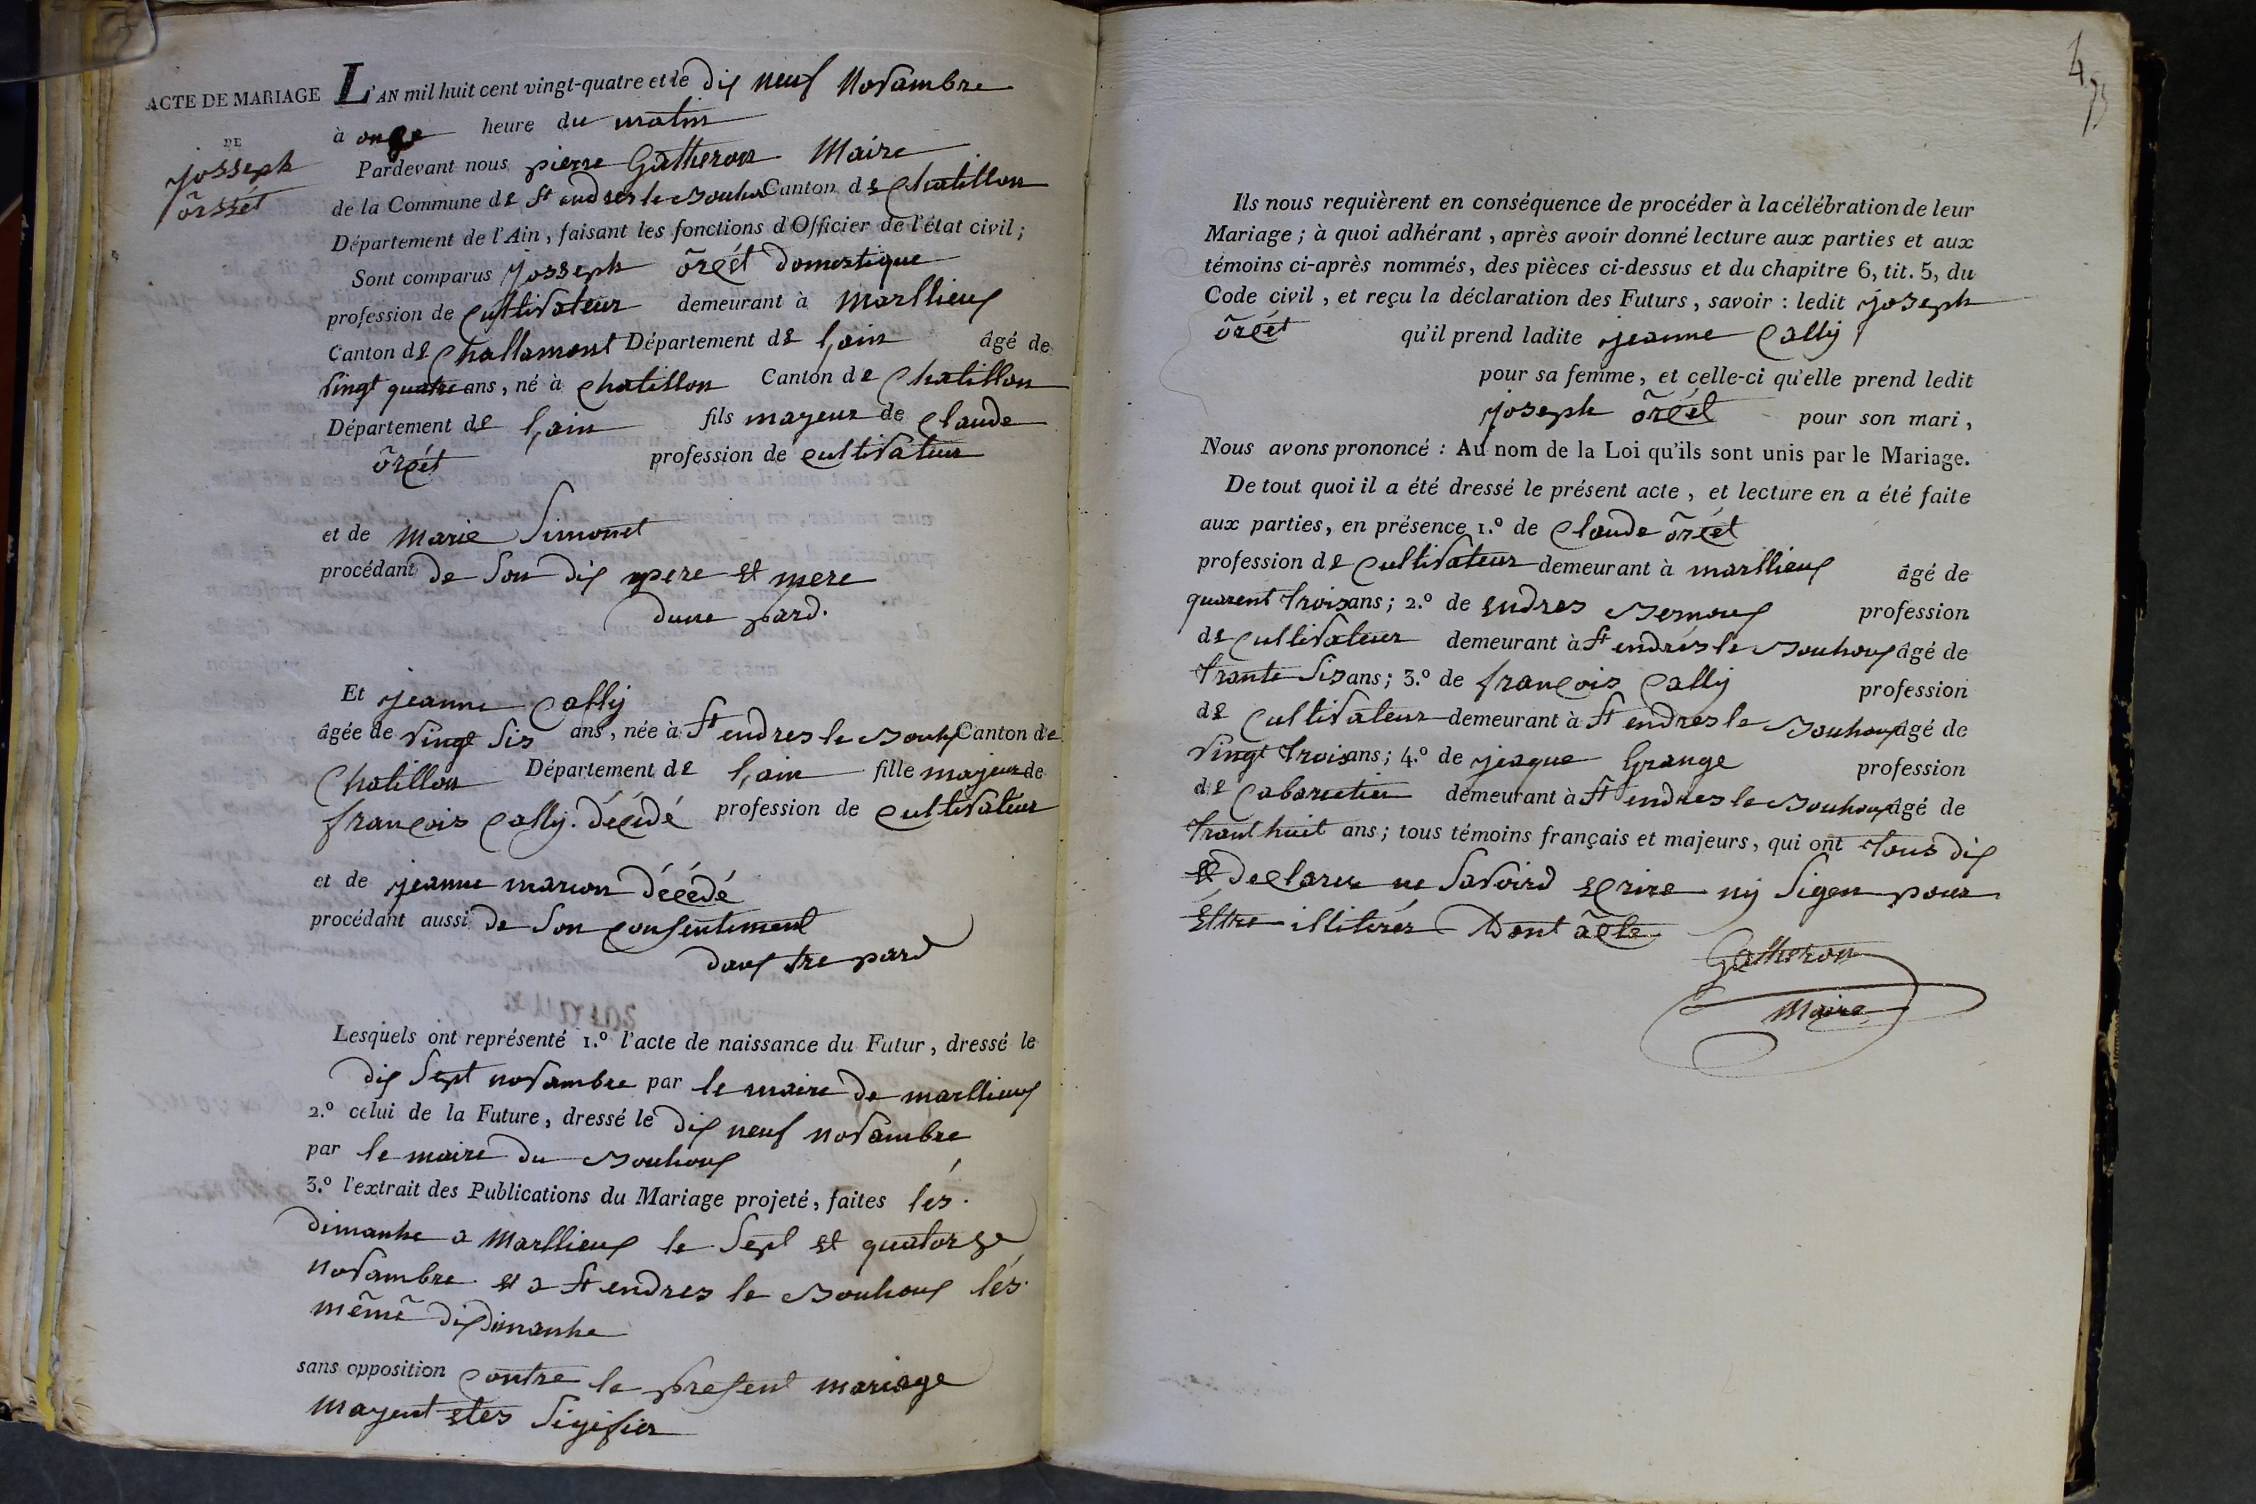 ACTE DE MARIAGE
DE
josseph
õrssét
L'AN mil huit cent vingt-quatre et le dix neuf novambre
à onze heure du matin
Pardevant nous pierre Gatheron Maire
de la Commune de St endres le Bouhos Canton de Chatillon
Département de l'Ain, faisant les fonctions d'Officier de l'état civil;
Sont comparus josseph õrcét domestique
profession de Cultivateur demeurant à marllieux
Canton de Challamont Département de lain âgé de
vingt quatre ans, né à Chatillon Canton de Chatillon
Département de lain fils mayeur de Claude
õrcét profession de Cultivateur
et de Marie Simonet
procédant de Son dix pere et mere
dune pard.
Et jeanne Cally
âgée de vingt Sis ans, née à St endres le Bouhx Canton de
Chatillon Département de lain fille mayeur de
françois Cally. décédé profession de Cultivateur
et de jeanne marion décédé
procédant aussi de Son Consentement
daus tre pard
Lesquels ont représenté 1.° l'acte de naissance du Futur, dressé le
dix Sept novambre par le maire de marllieux
2.° celui de la Future, dressé le dix neuf novambre
par le maire du Bouhoux
3.° l'extrait des Publications du Mariage projeté, faites lés.
dimanhe a Marllieux le Sept et quatorze
novambre et a St endres le Bouhoux lés.
mẽmẽ dix dimanhe
sans opposition Contre le present mariage
mayent etes Sigifier
4
73
Ils nous requièrent en conséquence de procéder à la célébration de leur
Mariage; à quoi adhérant, après avoir donné lecture aux parties et aux
témoins ci-après nommés, des pièces ci-dessus et du chapitre 6, tit. 5, du
Code civil, et reçu la déclaration des Futurs, savoir : ledit joseph
õrcét qu'il prend ladite jeanne Cally
pour sa femme, et celle-ci qu'elle prend ledit
joseph õrcét pour son mari,
Nous avons prononcé : Au nom de la Loi qu'ils sont unis par le Mariage.
De tout quoi il a été dressé le présent acte, et lecture en a été faite
aux parties, en présence 1.° de Claude õrcét
profession de Cultivateur demeurant à marllieux âgé de
quarent trois ans; 2.° de endres Bernoux profession
de Cultivateur demeurant à St endrés le Bouhoux âgé de
trante Sis ans; 3.° de françois Cally profession
de Cultivateur demeurant à St endres le Bouhoux âgé de
vingt trois ans; 4.° de jeaque Grange profession
de Cabaretier demeurant à St endres le Bouhoux âgé de
trant huit ans; tous témoins français et majeurs, qui ont tous dix
et declarer ne Savoird ecrire ny Sigen pour
Ettre illiterés Dont ãcte
Gatheron
Maire